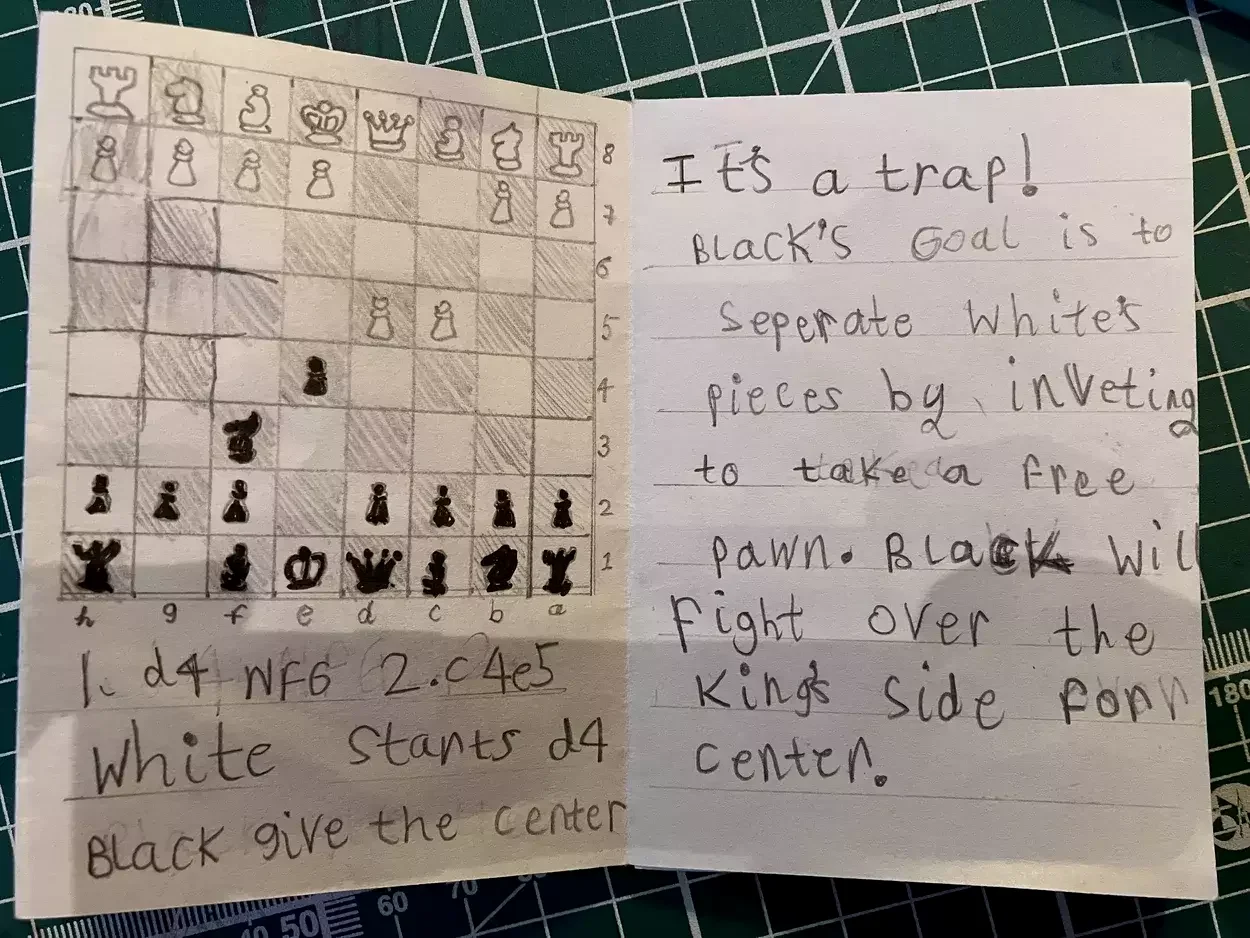 8
7
6
5
4
3
2
1
h g f e d c b a
1. d4 NF6 2.c4e5
White Starts d4
Black give the center
It's a trap!
Black's Goal is to
Seperate White's
pieces by inveting
to take a free
pawn. Black Will
Fight over the
King's side
center.
180
50
60
70